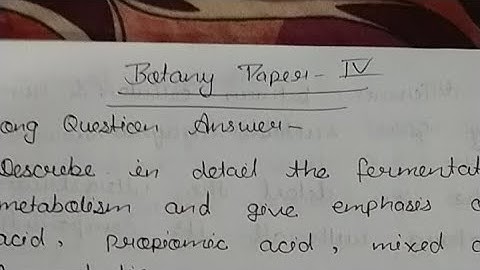 Botany Paper - IV
ong Question Answer -
Describe in detail the fermentat
metabolism and give emphasis
acid, propionic acid, mixed